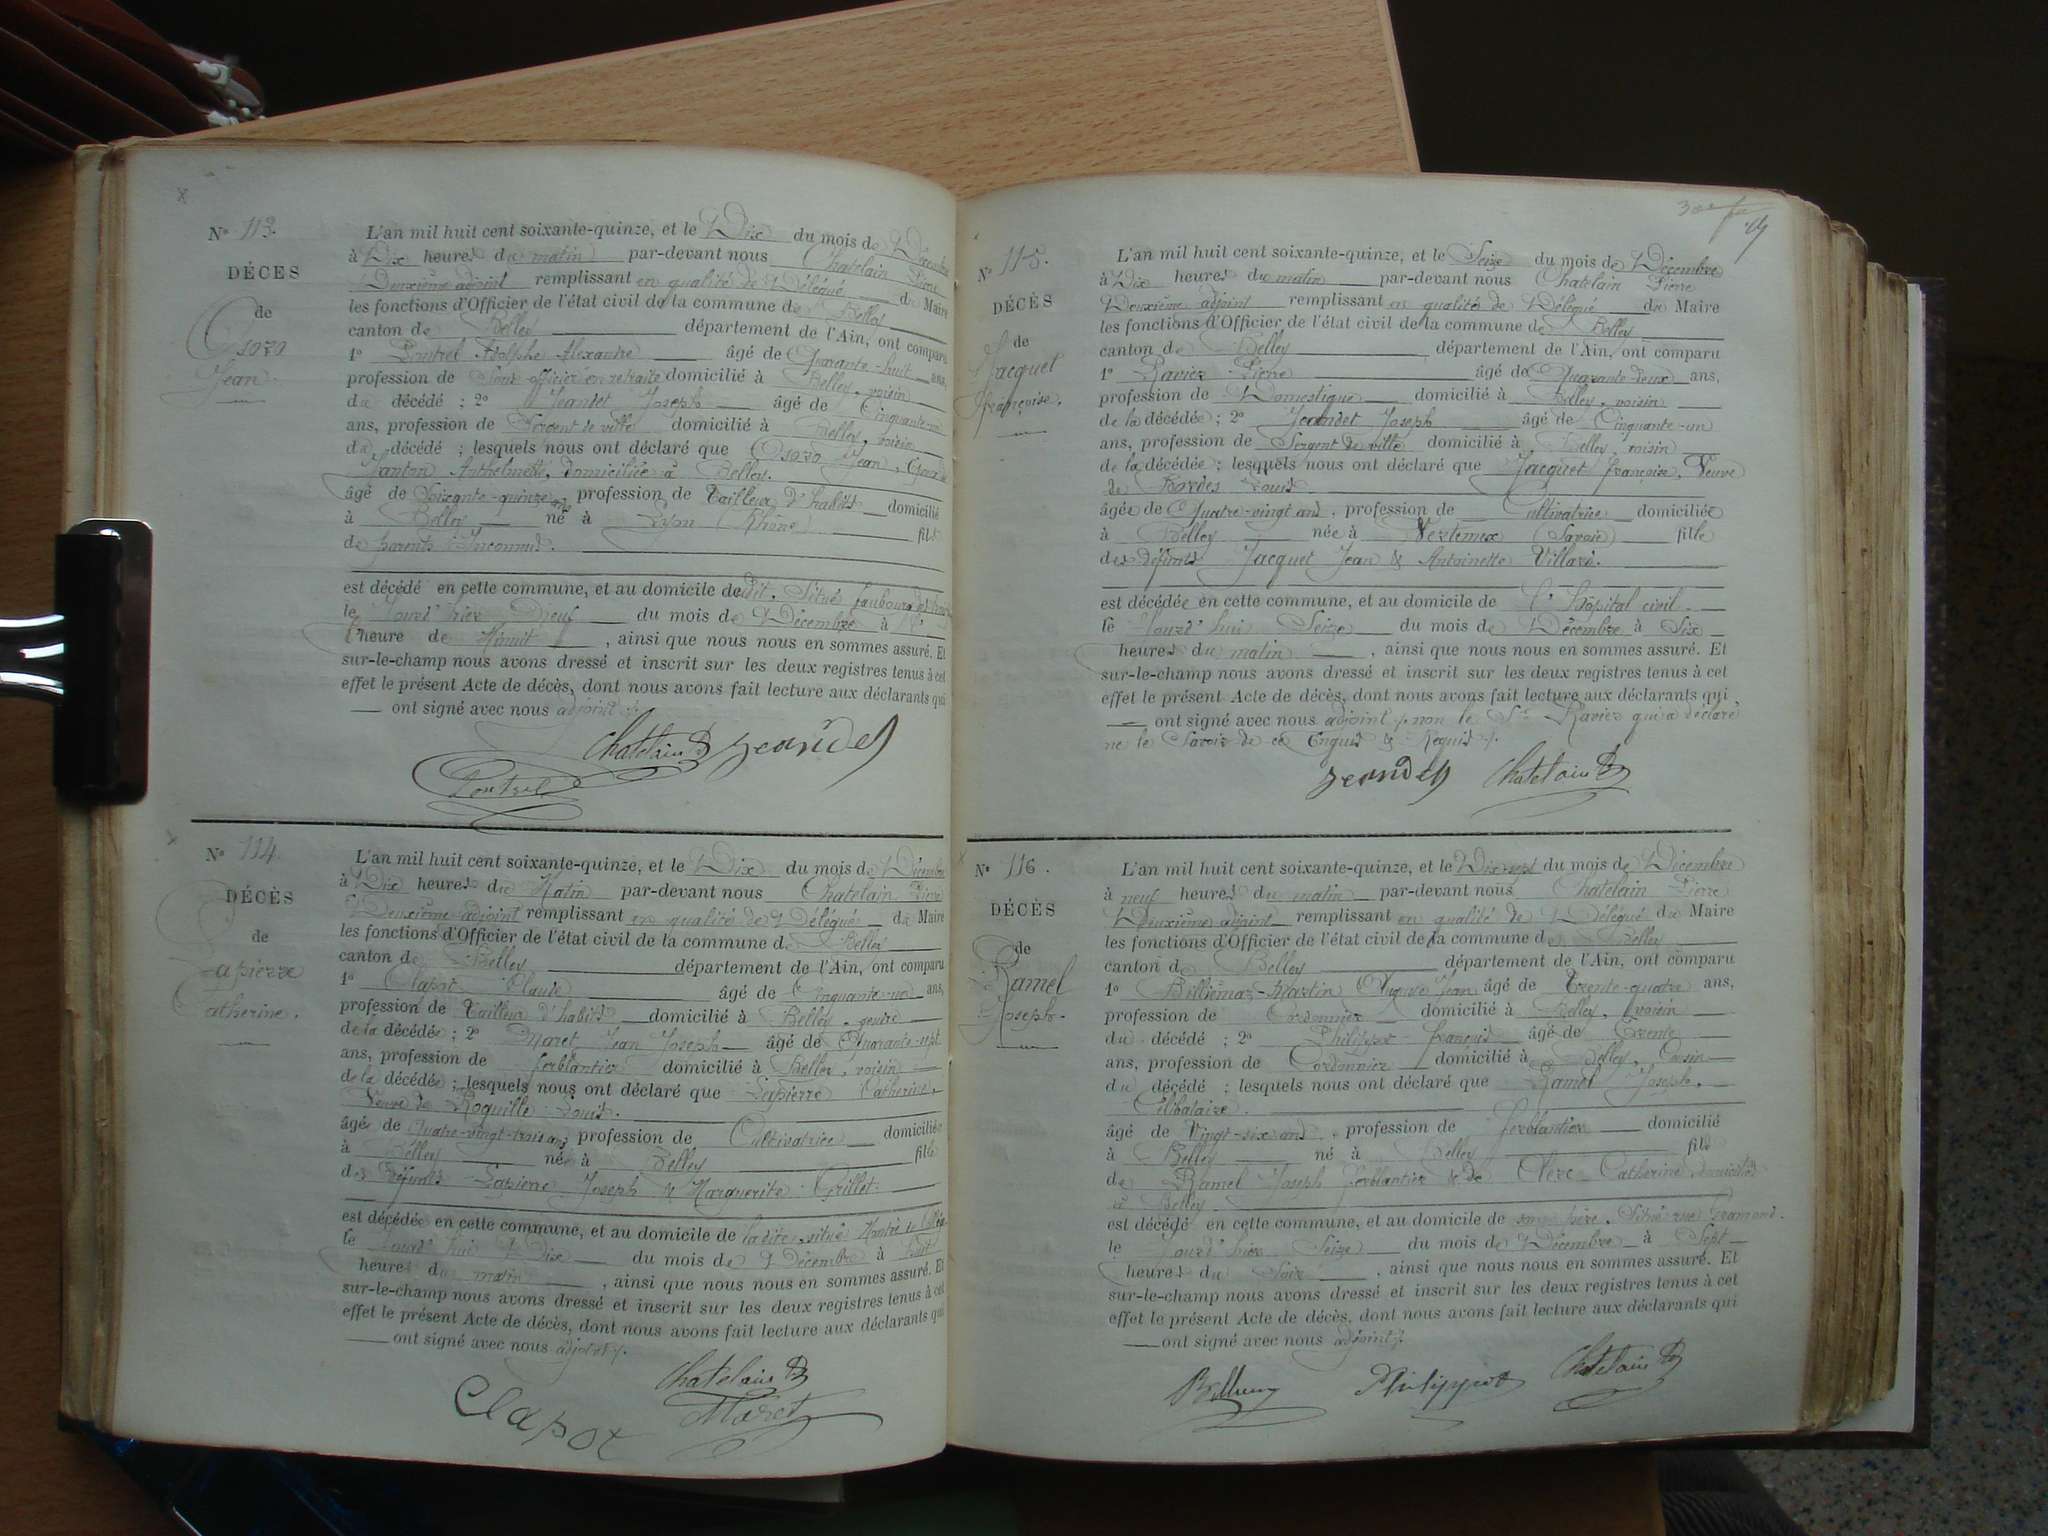 N° 113.
DÉCÈS
de
Osoro
Jean.
L'an mil huit cent soixante-quinze, et le Dix du mois de Décembre
à Dix heures du matin par-devant nous Chatelain Pierre
Deuxième adjoint remplissant en qualité de Délégué du Maire
les fonctions d'Officier de l'état civil de la commune de Belley
canton de Belley département de l'Ain, ont comparu
1° Poutrel Adolphe Alexandre âgé de Quarante-huit ans,
profession de Sous-officier en retraite domicilié à Belley, voisin
du décédé ; 2° Jeandet Joseph âgé de Cinquante-un
ans, profession de Sergent de ville domicilié à Belley, voisin
du décédé ; lesquels nous ont déclaré que Osoro Jean,
Anthelmette, domiciliée à Belley.
âgé de Soixante-quinze ans profession de Tailleur d'habits domicilié
à Belley né à Lyon (Rhône) fils
de parents Inconnus.
est décédé en cette commune, et au domicile de dit. Situé faubourg
le jourd'hier Neuf du mois de Décembre à l'
heure de Minuit, ainsi que nous nous en sommes assuré. Et
sur-le-champ nous avons dressé et inscrit sur les deux registres tenus à cet
effet le présent Acte de décès, dont nous avons fait lecture aux déclarants qui
ont signé avec nous adjoint ./.
Chatelain P Jeandet
Poutrel
N° 114.
DÉCÈS
de
Lapierre
Catherine.
L'an mil huit cent soixante-quinze, et le Dix du mois de Décembre
à Dix heures du Matin par-devant nous Chatelain Pierre
Deuxième adjoint remplissant en qualité de Délégué du Maire
les fonctions d'Officier de l'état civil de la commune de Belley
canton de Belley département de l'Ain, ont comparu
1° Clapot Claude âgé de Cinquante-un ans,
profession de Tailleur d'habits domicilié à Belley, gendre
de la décédée ; 2° Maret Jean Joseph âgé de Quarante-sept
ans, profession de ferblantier domicilié à Belley, voisin
de la décédée ; lesquels nous ont déclaré que Lapierre Catherine,
Veuve de Roquille Louis.
âgé de Quatre-vingt-trois ans, profession de Cultivatrice domiciliée
à Belley née à Belley fille
des Défunts Lapierre Joseph & Marguerite Grillet
est décédée en cette commune, et au domicile de la dite, situé Montée du
le jourd'hui Dix du mois de Décembre à huit
heures du matin, ainsi que nous nous en sommes assuré. Et
sur-le-champ nous avons dressé et inscrit sur les deux registres tenus à cet
effet le présent Acte de décès, dont nous avons fait lecture aux déclarants qui
ont signé avec nous adjoint ./.
Chatelain P
Clapot Maret
N° 115.
DÉCÈS
de
Jacquet
françoise.
L'an mil huit cent soixante-quinze, et le Seize du mois de Décembre
à Dix heures du matin par-devant nous Chatelain Pierre
Deuxième adjoint remplissant en qualité de Délégué du Maire
les fonctions d'Officier de l'état civil de la commune de Belley
canton de Belley département de l'Ain, ont comparu
1° Ravier Pierre âgé de Quarante-deux ans,
profession de Domestique domicilié à Belley, voisin
de la décédée ; 2° Jeandet Joseph âgé de Cinquante-un
ans, profession de Sergent de ville domicilié à Belley, voisin
de la décédée ; lesquels nous ont déclaré que Jacquet françoise, Veuve
de Bordes Louis
âgée de Quatre-vingt ans, profession de Cultivatrice domiciliée
à Belley née à Vertemex (Savoie) fille
des défunts Jacquet Jean & Antoinette Villard.
est décédée en cette commune, et au domicile de l'hôpital civil.
le jourd'hui Seize du mois de Décembre à Six
heures du matin, ainsi que nous nous en sommes assuré. Et
sur-le-champ nous avons dressé et inscrit sur les deux registres tenus à cet
effet le présent Acte de décès, dont nous avons fait lecture aux déclarants qui,
ont signé avec nous adjoint ./. non le Sr Ravier qui a déclaré
ne le Savoir de ce Enquis & Requis ./.
Jeandet Chatelain P
N° 116.
DÉCÈS
de
Ramel
Joseph.
L'an mil huit cent soixante-quinze, et le Dix-sept du mois de Décembre
à neuf heures du matin par-devant nous Chatelain Pierre
Deuxième adjoint remplissant en qualité de Délégué du Maire
les fonctions d'Officier de l'état civil de la commune de Belley
canton de Belley département de l'Ain, ont comparu
1° Billiemaz-Martin Jean âgé de Trente-quatre ans,
profession de Cordonnier domicilié à Belley, voisin
du décédé ; 2° Philippot françois âgé de Trente
ans, profession de Cordonnier domicilié à Belley, Cousin
du décédé ; lesquels nous ont déclaré que Ramel Joseph,
Célibataire.
âgé de Vingt-six ans, profession de ferblantier domicilié
à Belley né à Belley fils
de Ramel Joseph ferblantier & de Clerc Catherine, domiciliés
à Belley.
est décédé en cette commune, et au domicile de son père. Situé rue Gramond.
le jourd'hier Seize du mois de Décembre à Sept
heures du Soir, ainsi que nous nous en sommes assuré. Et
sur-le-champ nous avons dressé et inscrit sur les deux registres tenus à cet
effet le présent Acte de décès, dont nous avons fait lecture aux déclarants qui
ont signé avec nous adjoint ./.
Philippot Chatelain P